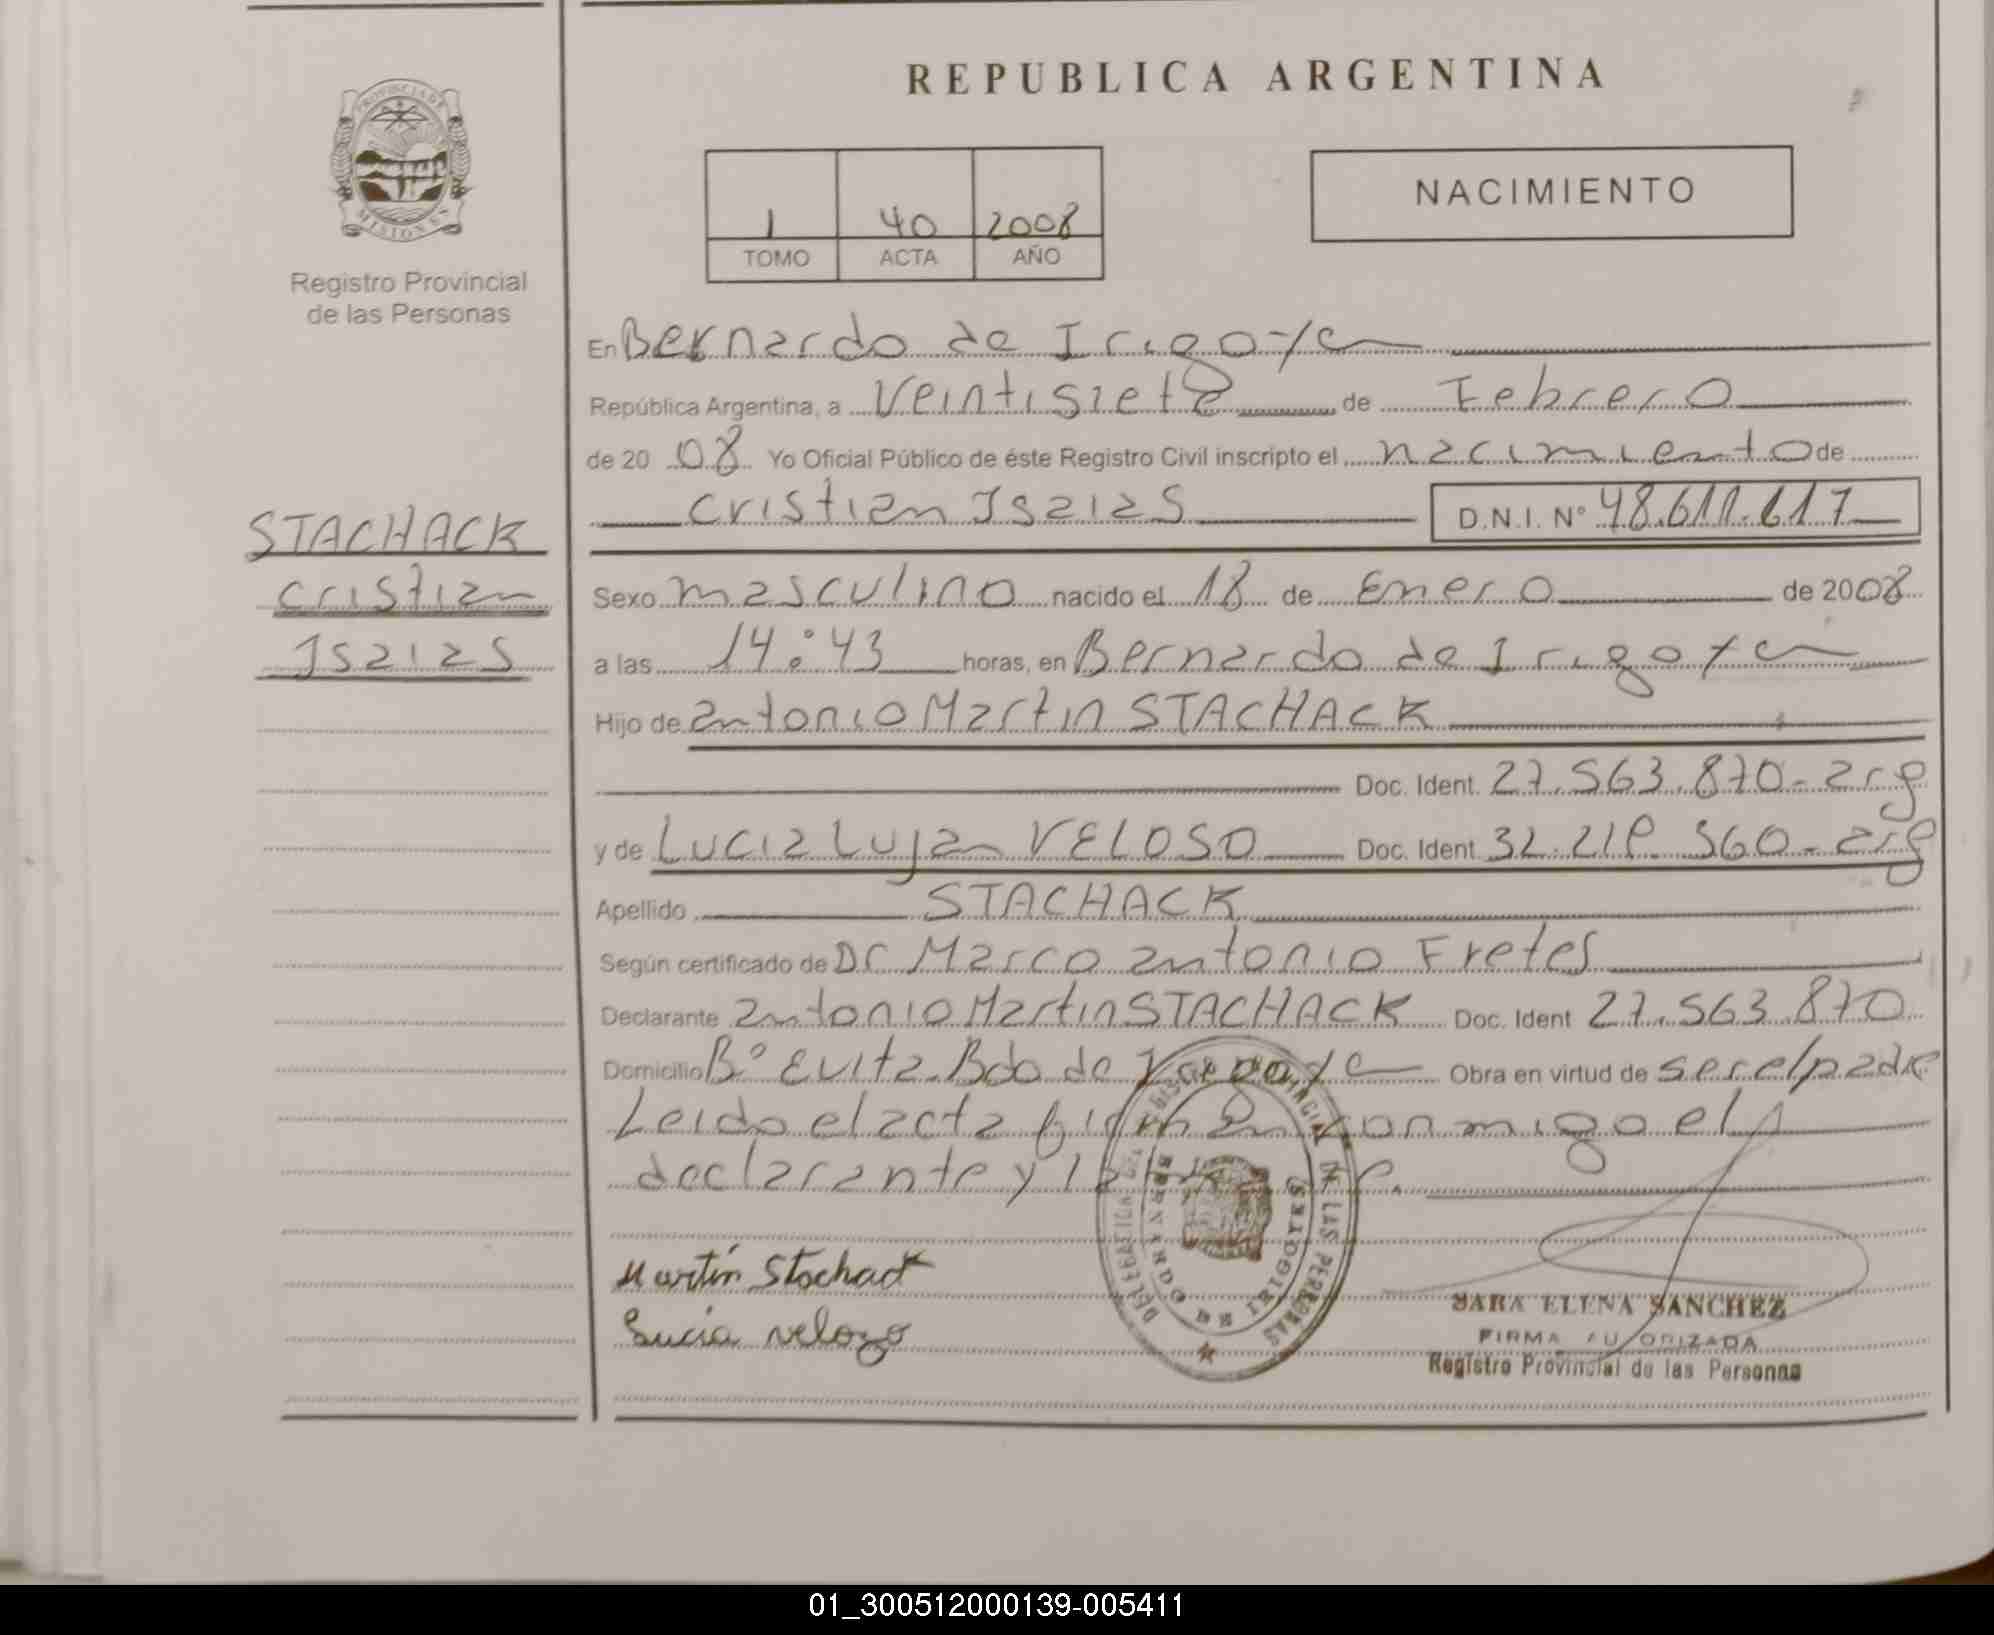 REPUBLICA ARGENTINA
PROVINCIA DE
MISIONES
Registro Provincial
de las Personas
1 40 2008
TOMO ACTA AÑO
NACIMIENTO
En Bernardo de Irigoyen
República Argentina, a Veintisiete de Febrero
de 2008 Yo Oficial Público de éste Registro Civil inscripto el nacimiento de
Cristian Isaias D.N.I. N° 48.611.617
STACHACK
Cristian
Isaias
Sexo masculino nacido el 18 de Enero de 2008
a las 14:43 horas, en Bernardo de Irigoyen
Hijo de Antonio Martin STACHACK
Doc. Ident. 27.563.870-arg
y de Lucia Lujan VELOSO Doc. Ident. 32.21 560-arg
Apellido STACHACK
Según certificado de Dr Marco Antonio Fretes
Declarante Antonio Martin STACHACK Doc. Ident 27.563.870
Domicilio B° Evita. Bdo de Irigoyen Obra en virtud de ser el padre
Leido el acta firman conmigo el
declarante y la
DELEGACION DEL REGISTRO PROVINCIAL DE LAS PERSONAS
BERNARDO DE IRIGOYEN
Martín Stachack
Lucia Velozo
SARA ELENA SANCHEZ
FIRMA AUTORIZADA
Registro Provincial de las Personas
01_300512000139-005411